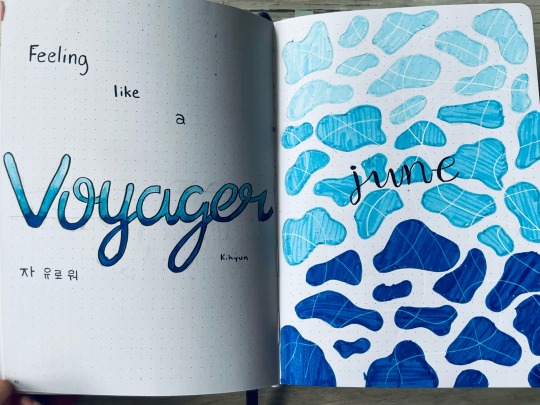 Feeling
like
a
Voyager
Kihyun
자 유로워
june